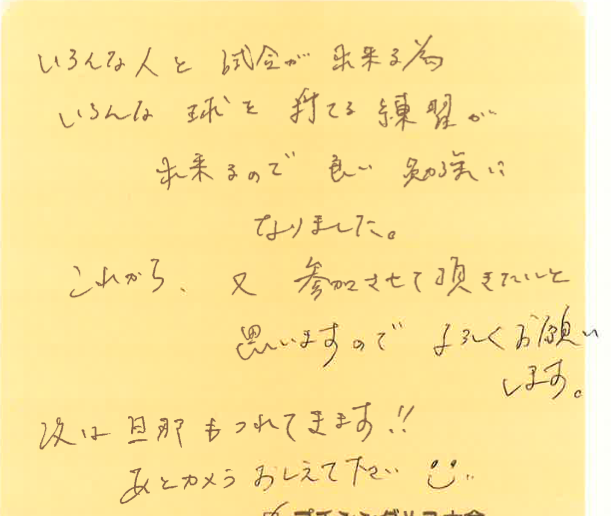 いろんな人と 試合が 出来る為
いろんな 球を 打てる 練習が
出来るので 良い 勉強に
なりました。
これから、又 参加させて頂きたいと
思いますので よろしくお願い
します。
次は 旦那もつれてきます!!
あとカメラ おしえて下さい